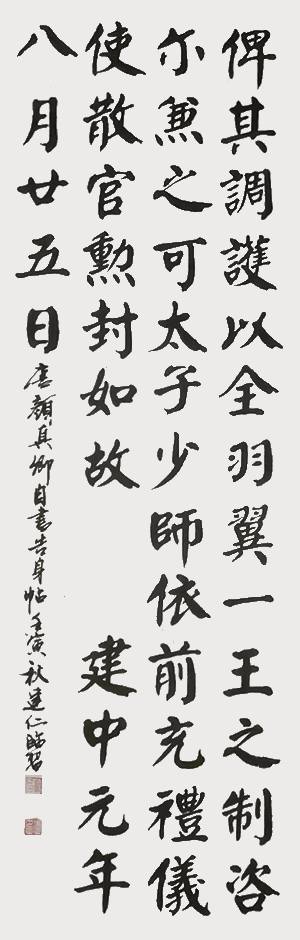 俾其調護以全羽翼一王之制咨
尒兼之可太子少師依前充禮儀
使散官勳封如故 建中元年
八月廿五日
唐顏真卿自書告身帖壬寅秋建仁臨習